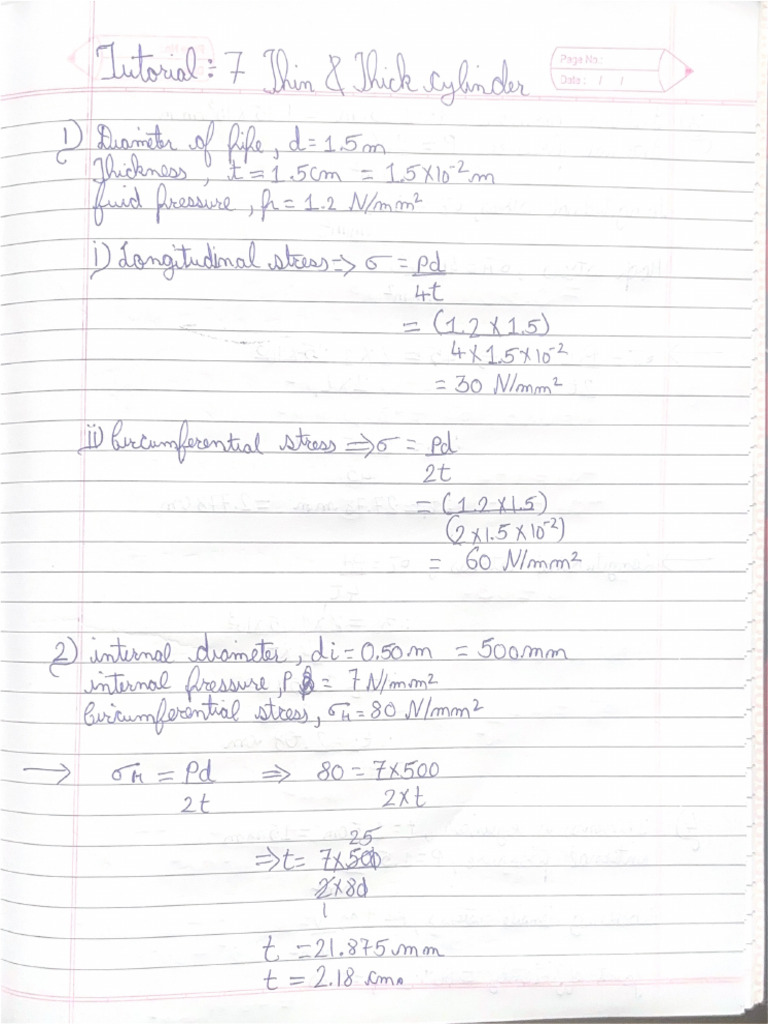 Tutorial:- 7 Thin & Thick cylinder
Page No.:
Date: / /
1) Diameter of pipe, d = 1.5 m
Thickness, t = 1.5 cm = 1.5 × 10⁻² m
fuid pressure, p = 1.2 N/mm²
i) Longitudinal stress => σ = Pd
4t
= (1.2 × 1.5)
4 × 1.5 × 10⁻²
= 30 N/mm²
ii) Circumferential stress => σ = Pd
2t
= (1.2 × 1.5)
(2 × 1.5 × 10⁻²)
= 60 N/mm²
2) internal diameter, di = 0.50 m = 500 mm
internal pressure, P = 7 N/mm²
Circumferential stress, σH = 80 N/mm²
→ σH = Pd => 80 = 7 × 500
2t 2 × t
25
=> t = 7 × 500
2 × 80
1
t = 21.875 mm
t = 2.18 cm